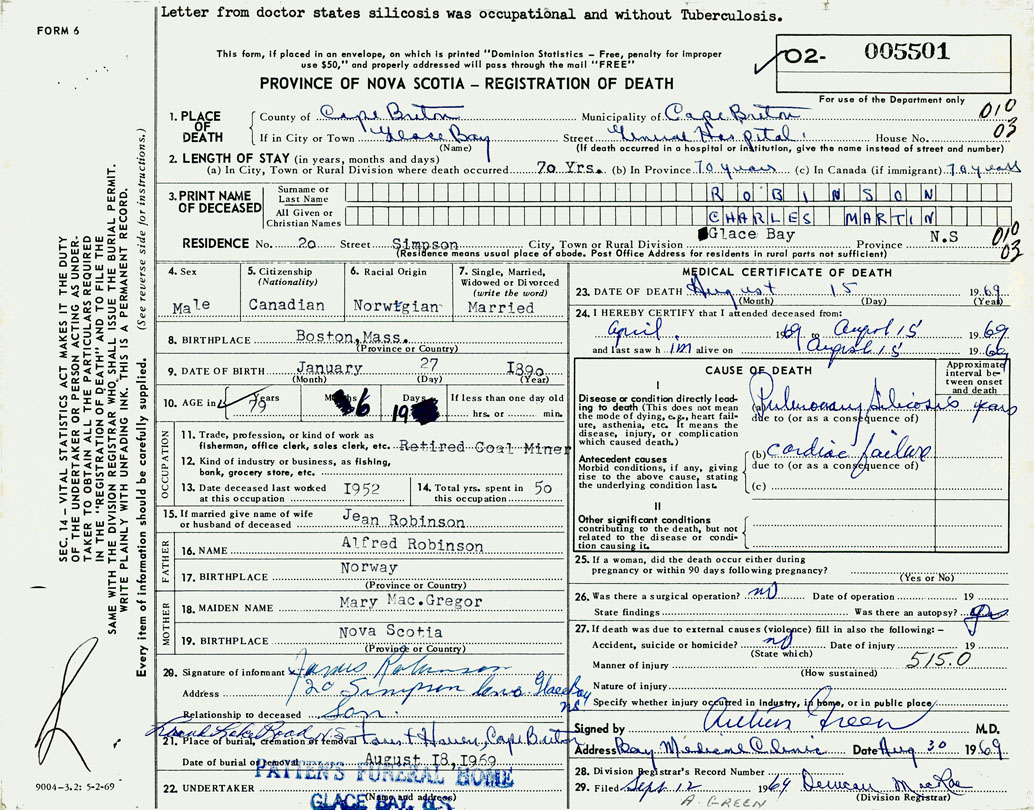 Letter from doctor states silicosis was occupational and without Tuberculosis.
FORM 6
This form, if placed in an envelope, on which is printed "Dominion Statistics - Free, penalty for improper
use $50," and properly addressed will pass through the mail "FREE"
O2- 005501
PROVINCE OF NOVA SCOTIA - REGISTRATION OF DEATH
For use of the Department only
1. PLACE OF DEATH
County of Cape Breton Municipality of Cape Breton 010
If in City or Town Glace Bay Street General Hospital House No. 03
(Name) (If death occurred in a hospital or institution, give the name instead of street and number)
2. LENGTH OF STAY (in years, months and days)
(a) In City, Town or Rural Division where death occurred 70 Yrs. (b) In Province 70 years (c) In Canada (if immigrant) 70 years
3. PRINT NAME OF DECEASED
Surname or Last Name ROBINSON
All Given or Christian Names CHARLES MARTIN
RESIDENCE No. 20 Street Simpson City, Town or Rural Division Glace Bay Province N.S 010 03
(Residence means usual place of abode. Post Office Address for residents in rural parts not sufficient)
4. Sex
Male
5. Citizenship (Nationality)
Canadian
6. Racial Origin
Norwigian
7. Single, Married, Widowed or Divorced (write the word)
Married
8. BIRTHPLACE Boston, Mass.
(Province or Country)
9. DATE OF BIRTH January 27 I890
(Month) (Day) (Year)
10. AGE in Years 79 Months 6 Days 19 If less than one day old
hrs. or min.
OCCUPATION
11. Trade, profession, or kind of work as
fisherman, office clerk, sales clerk, etc. Retired Coal Miner
12. Kind of industry or business, as fishing,
bank, grocery store, etc.
13. Date deceased last worked at this occupation I952
14. Total yrs. spent in this occupation 50
15. If married give name of wife
or husband of deceased Jean Robinson
FATHER
16. NAME Alfred Robinson
17. BIRTHPLACE Norway
(Province or Country)
MOTHER
18. MAIDEN NAME Mary Mac.Gregor
19. BIRTHPLACE Nova Scotia
(Province or Country)
20. Signature of informant James Robinson
Address 20 Simpson Glace Bay
NS
Relationship to deceased Son
21. Place of burial, cremation or removal Cape Breton
Date of burial or removal August I8, I969
22. UNDERTAKER PATTEN'S FUNERAL HOME
(Name and address)
GLACE BAY, N.S.
MEDICAL CERTIFICATE OF DEATH
23. DATE OF DEATH August 15 1969
(Month) (Day) (Year)
24. I HEREBY CERTIFY that I attended deceased from:
April 1969 to August 15 1969
and last saw him alive on August 15 1969
CAUSE OF DEATH
Approximate interval between onset and death
I
Disease or condition directly leading
to death (This does not mean
the mode of dying, e.g., heart failure,
asthenia, etc. It means the
disease, injury, or complication
which caused death.)
(a) Pulmonary Silicosis years
due to (or as a consequence of)
Antecedent causes
Morbid conditions, if any, giving
rise to the above cause, stating
the underlying condition last.
(b) cardiac failure
due to (or as a consequence of)
(c)
II
Other significant conditions
contributing to the death, but not
related to the disease or condition
causing it.
25. If a woman, did the death occur either during
pregnancy or within 90 days following pregnancy?
(Yes or No)
26. Was there a surgical operation? no Date of operation 19
State findings Was there an autopsy? yes
27. If death was due to external causes (violence) fill in also the following:-
Accident, suicide or homicide? no Date 19
(State which)
Manner of injury 515.0
(How sustained)
Nature of injury
Specify whether injury occurred in industry, in home, or in public place
Signed by Arthur Green M.D.
Address Bay Medical Clinic Date Aug 30 1969
28. Division Registrar's Record Number
29. Filed Sept. 12 1969 Duncan MacRae
(Division Registrar)
A. GREEN
SEC. 14 - VITAL STATISTICS ACT MAKES IT THE DUTY
OF THE UNDERTAKER OR PERSON ACTING AS UNDERTAKER
TO OBTAIN ALL THE PARTICULARS REQUIRED
IN THE "REGISTRATION OF DEATH" AND TO FILE THE
SAME WITH THE DIVISION REGISTRAR WHO SHALL ISSUE THE BURIAL PERMIT.
WRITE PLAINLY WITH UNFADING INK. THIS IS A PERMANENT RECORD.
Every item of information should be carefully supplied. (See reverse side for instructions.)
9004-3.2: 5-2-69